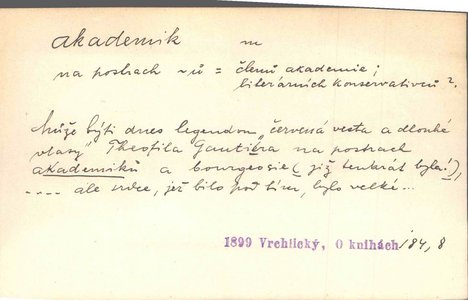 akademik m
na postrach ~ů = členů akademie;
literárních konservativců?
Může býti dnes legendou „červená vesta a dlouhé
vlasy" Theofila Gautiera na postrach
akademiků a bourgeosie (již tenkrát byla!),
.... ale srdce, jež bilo pod tím, bylo velké...
1899 Vrchlický, O knihách 184, 8